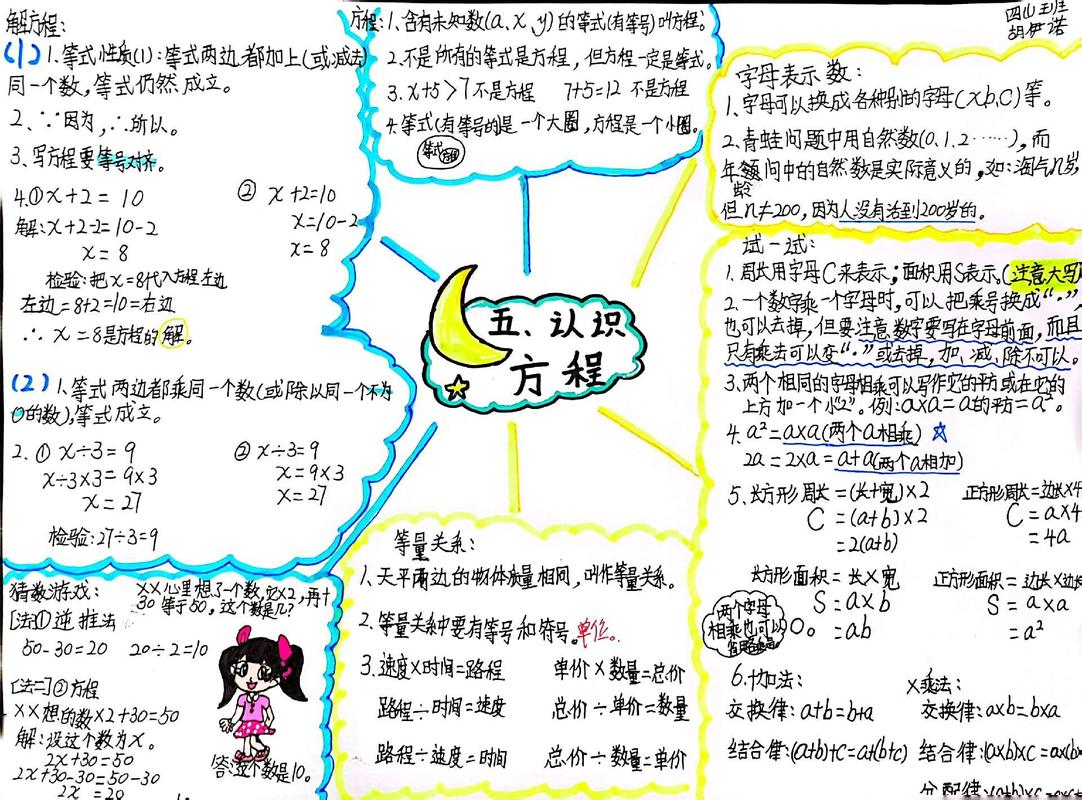 解方程:
(1) 1.等式性质(1):等式两边都加上(或减去
同一个数,等式仍然成立。
2、∵因为,∴所以。
3、写方程要等号对齐。
4.① x+2=10
解:x+2-2=10-2
x=8
② x+2=10
x=10-2
x=8
检验:把x=8代入方程左边
左边=8+2=10=右边
∴ x=8是方程的解。
(2) 1.等式两边都乘同一个数(或除以同一个不为
0的数),等式成立。
2.① x÷3=9
x÷3×3=9×3
x=27
② x÷3=9
x=9×3
x=27
检验:27÷3=9
猜数游戏:
××心里想了一个数,它×2,再+
30等于50,这个数是几?
[法①逆推法
50-30=20 20÷2=10
[法二]②方程
××想的数×2+30=50
解:设这个数为x。
2x+30=50
2x+30-30=50-30
2x=20
答:这个数是10。
方程:1.含有未知数(a、x、y)的等式(有等号)叫方程。
2.不是所有的等式是方程,但方程一定是等式。
3.x+5>7不是方程 7+5=12 不是方程
4.等式(有等号的是一个大圈,方程是一个小圈。
等式
五、认识
方程
等量关系:
1、天平两边的物体质量相同,叫作等量关系。
2.等量关系中要有等号和符号。单位。
3.速度×时间=路程 单价×数量=总价
路程÷时间=速度 总价÷单价=数量
路程÷速度=时间 总价÷数量=单价
四(1)班
胡伊诺
字母表示数:
1.字母可以换成各种别的字母(x、b、c)等。
2.青蛙问题中用自然数(0.1.2……),而
年龄问中的自然数是实际意义的,如:淘气n岁,
但n≠200,因为人没有活到200岁的。
试一试:
1.周长用字母C来表示;面积用S表示。(注意大写)
2.一个数字乘一个字母时,可以把乘号换成“·”,
也可以去掉,但要注意数字要写在字母前面,而且
只有乘法可以变“·”或去掉,加、减、除不可以。
3.两个相同的字母相乘可以写作它的平方或在它的
上方加一个小“2”。例:a×a=a的平方=a²。
4.a²=a×a(两个a相乘)☆
2a=2×a=a+a(两个a相加)
5、长方形周长=(长+宽)×2
C=(a+b)×2
=2(a+b)
正方形周长=边长×4
C=a×4
=4a
长方形面积=长×宽
S=a×b
=ab
正方形面积=边长×边长
S=a×a
=a²
两个字母
相乘也可以
6.+加法:
交换律:a+b=b+a
结合律:(a+b)+c=a+(b+c)
×乘法:
交换律:a×b=b×a
结合律:(a×b)×c=a×(b×
分配律:(a+b)×c